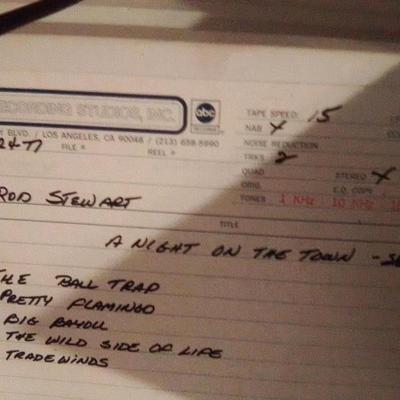 RECORDING STUDIOS, INC. abc TAPE SPEED: 15
NAB X
BLVD. / LOS ANGELES, CA 90048 / (213) 658-5990 NOISE REDUCTION
FILE # REEL # TRKS 2
QUAD STEREO X
ORIG. E.Q. COPY
ROD STEWART TONES 1 KHz 10 KHz
TITLE
A NIGHT ON THE TOWN
THE BALL TRAP
PRETTY FLAMINGO
BIG BAYOU
THE WILD SIDE OF LIFE
TRADEWINDS